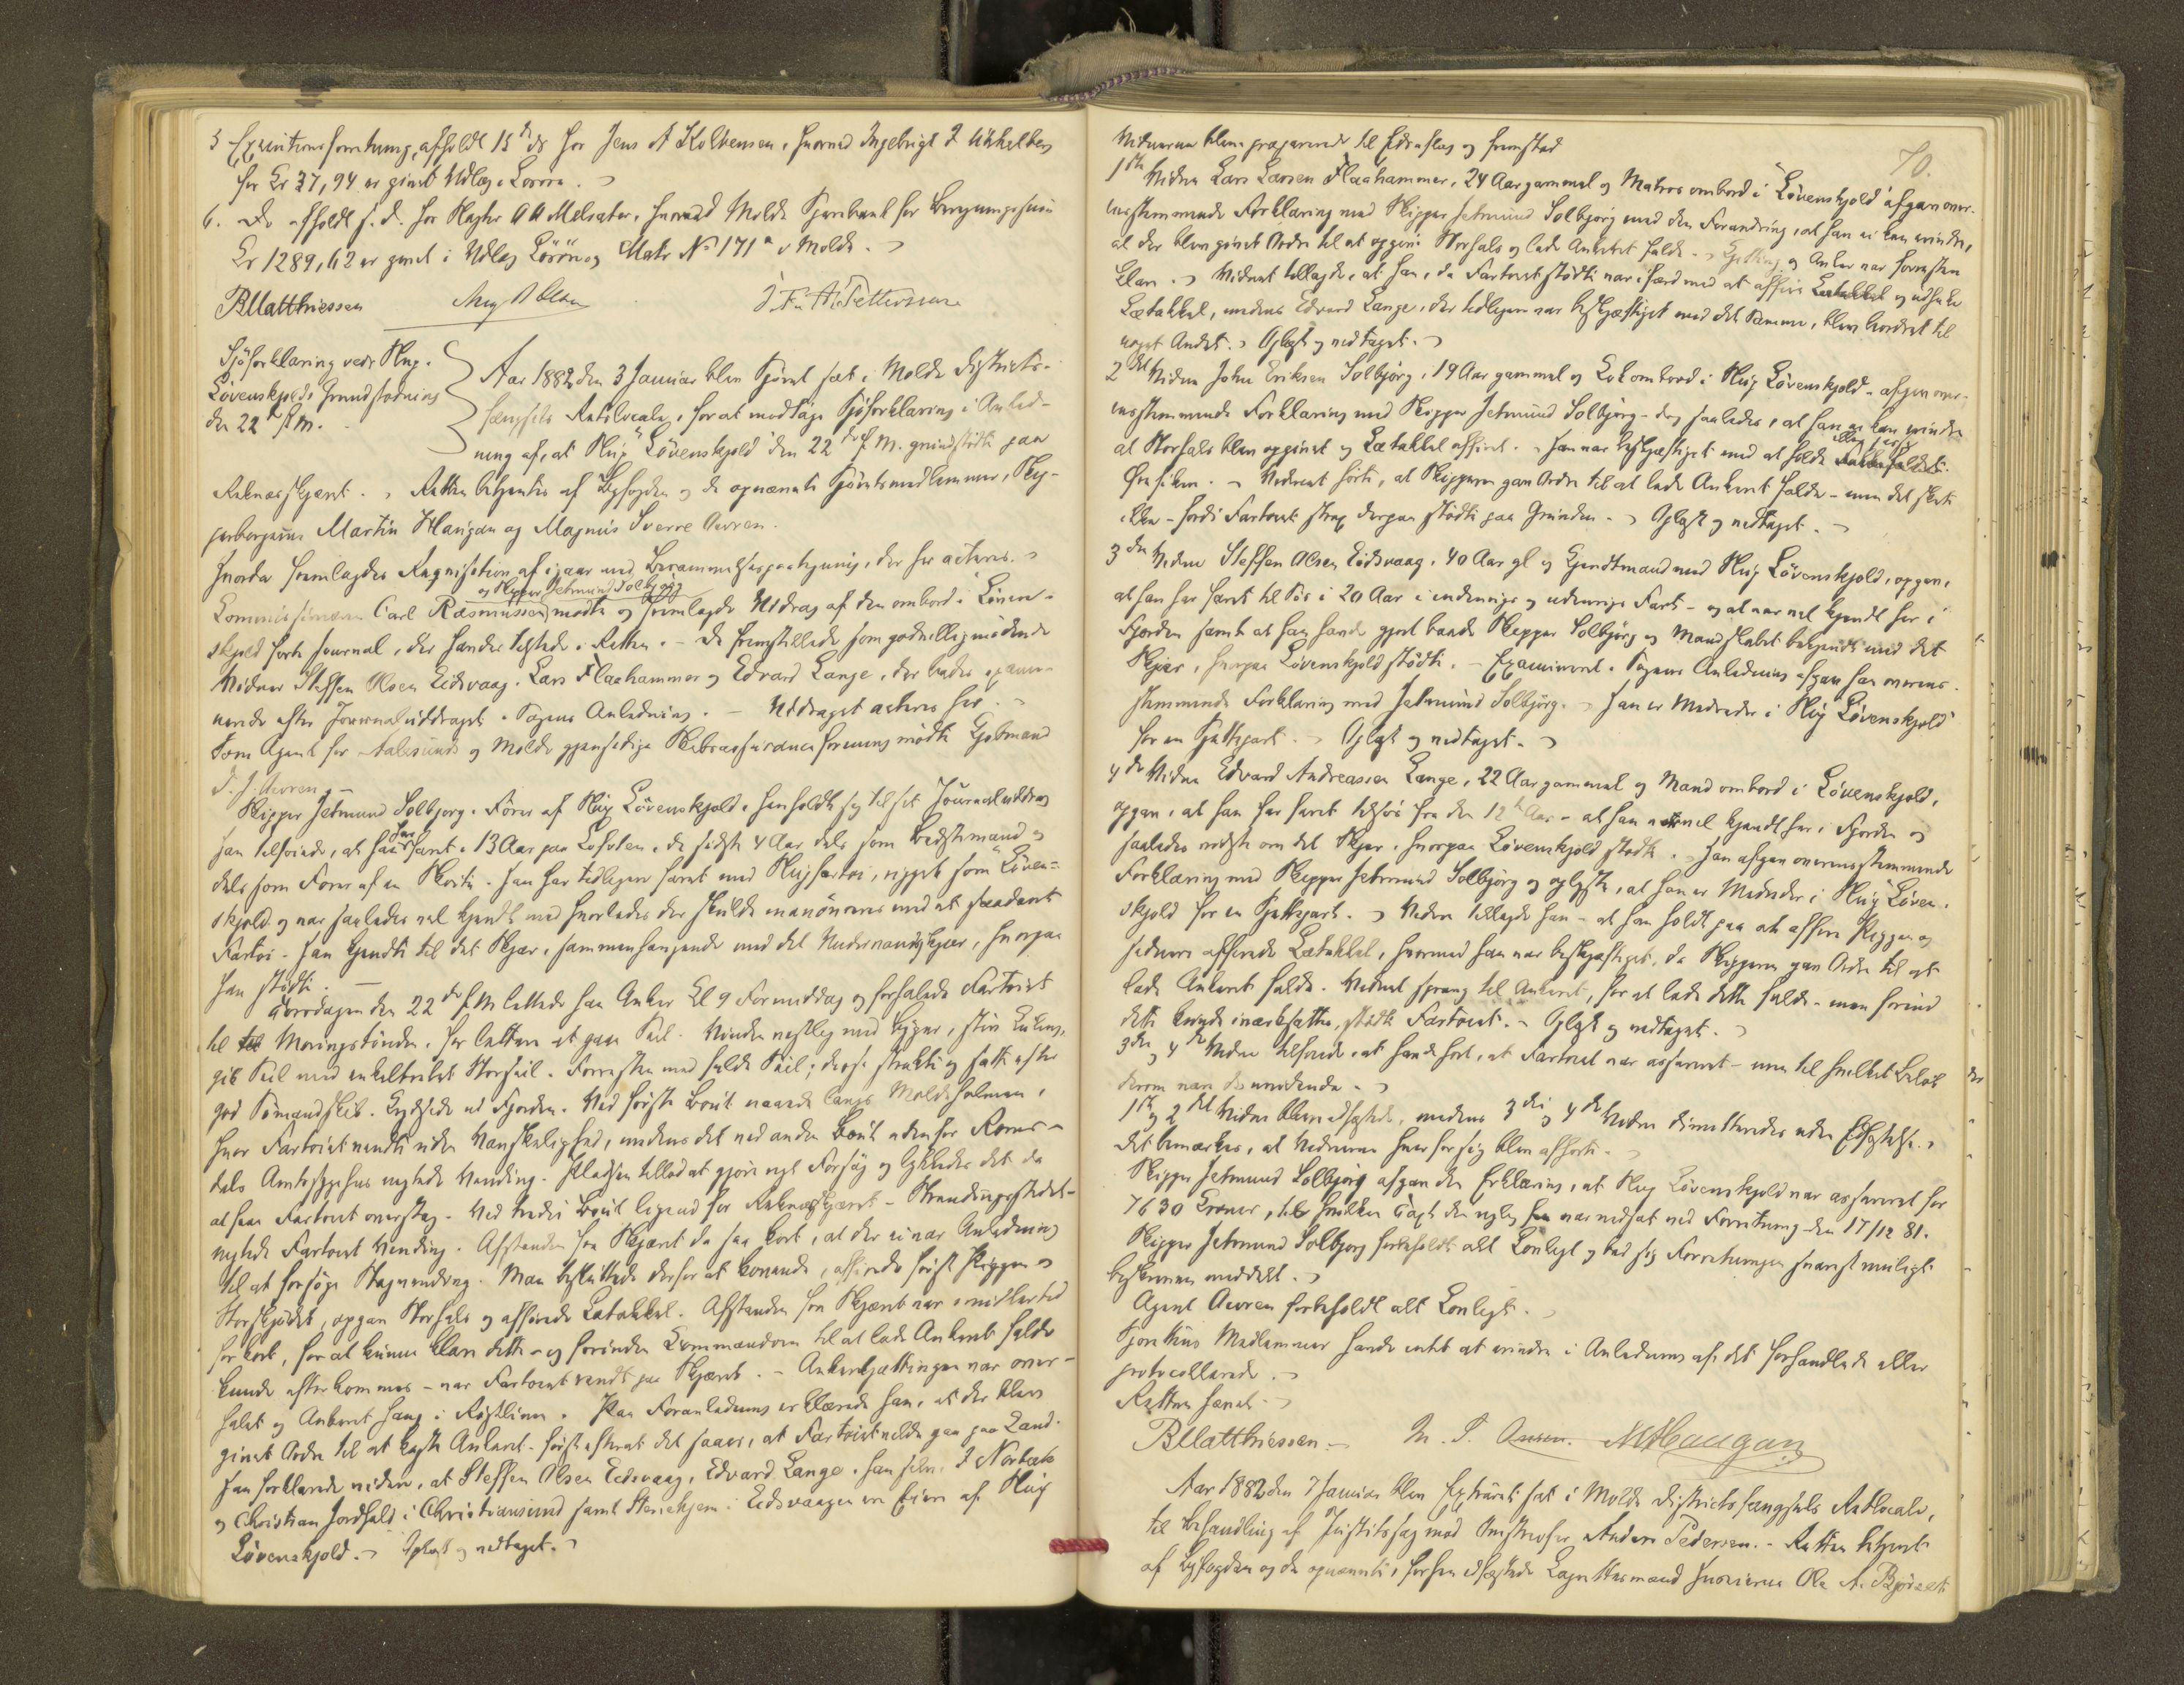 5 Executionsforretning, afholdt 15de ds hos Jens A Kolbensen, hvorved Ingebrigt J
for Kr 37,94 er givet Udlæg i Løsøre.
6. Do afholdt s. d. hos A A Melsæter, hvorved Molde Sparebank for
Kr 1289,62 er givet i Udlæg Løsøre og Matr No 171a i Molde.
BMatthiessen Aug Olsen J. F. A. Pettersen
Sjöforklaring vedr Slup.
Lövenskjolds Grundstødning
den 22de f. M.
Aar 1882 den 3 Januar blev Sjöret sat i Molde Districts-
fængsels Retslocale, for at modtage Sjöforklaring i Anled-
ning af, at Slup "Lövenskjold" den 22de f. M. grundstödte paa
Reknesskjæret. Retten betjentes af Byfogden og de opnævnte Sjöretsmedlemmer, Skip-
perborgerne Martin Haugan og Magnus Sverre Owren.
Hvorda fremlagdes Requisition af igaar med Berammelsespaategning, der her acteres.
og Skipper Jetmund Solbjörg
Commissionær Carl Rasmussen mödte og fremlagde Uddrag af den ombord i Löven-
skjold förte Journal, der havdes tilstede i Retten. De fremstillede som godvillig mödende
Vidner Steffen Olsen Eidsvaag, Lars Flaahammer og Edvard Lange, der bedes exami-
nerede efter Journaluddraget i Sagens Anledning. - Uddraget acteres her.
Som Agent for Aalesunds og Molde gjensidige Skibsassuranceforening mödte Kjøbmand
D. J. Owren. -
Skipper Jetmund Solbjörg, Förer af Slup Lövenskjold. Han holdt sig til sit Journaluddrag
Han tilföiede, at han har faret i 13 Aar paa Lofoten, de sidste 4 Aar dels som Bedstemand og
dels som Förer af en Skøite. Han har tidligere faret med Slupfartöi, rigget som Löven-
skjold og var saaledes vel kjendt med hvorledes der skulde manövreres med et saadant
Fartöi. Han kjendte til det Skjær, sammenhængende med det Skjær, hvorpaa
han stödte. -
Torsdagen den 22de f M lettede han Anker Kl 9 Formiddag og forhalede Fartöiet
til Moringstönden, for lettere at gaa Seil. Vinden vestlig med Byger, stiv Kuling,
gik Seil med enkeltrebet Storseil. Forresten med fulde Seil; disse strakte og satte efter
god Sömandskik. Krydsede ud Fjorden. Ved förste Bout naaede langs Moldeholmen,
hvor Fartöiet vendte uden Vanskelighed, medens det ved anden Bout udenfor Roms-
dals Amtssygehus nægtede Vending. Pladsen tillod at gjöre nyt Forsög og lykkedes det da
at faa Fartöiet overstag. Ved tredie Bout ligeud for Reknesskjæret - Strandingsstedet -
nægtede Fartöiet Vending. Afstanden fra Skjæret da saa kort, at der ei var Anledning
til at forsöge Stagvending. Man besluttede derfor at kovende, affirede först Piggen og
Storskjödet, opgav Storhals og affirede Lætakkel. Afstanden fra Skjæret var imidlertid
for kort, for at kunne klare dette - og forinden Commandoen til at lade Ankeret falde
kunde efterkommes - var Fartöiet rendt paa Skjæret. - Ankerkjættingen var over-
halet og Ankeret hang i Röstlinen. Paa Foranledning erklærede han, at der blev
givet Ordre til at kaste Ankeret först efterat det saaes, at Fartöiet vilde gaa paa Land.
Han forklarede videre, at Steffen Olsen Eidsvaag, Edvard Lange, han selv, J Norbæk
og Christian Jordhald i Christiansund samt Stenehjem i Eidsvaagen ere Eiere af Slup
Lövenskjold. - Oplæst og vedtaget.
70.
Vidnerne bleve præparerede til Edsaflæg og fremstod
1ste Vidne Lars Larsen Flaahammer, 24 Aar gammel og Matros ombord i "Lövenskjold" afgav over-
ensstemmende Forklaring med Skipper Jetmund Solbjörg med den Forandring, at han ei kan erindre,
at der blev givet Ordre til at opgive Storhals og lade Ankeret falde. Kjetting og Anker var forresten
klar. Vidnet tillagde, at han, da Fartöiet stödte var ifærd med at affire og udhale
Lætakkel, medens Edvard Lange, der tidligere var beskjæftiget med det Samme, blev beordret til
noget Andet. Oplæst og vedtaget.
2det Vidne John Eriksen Solbjörg, 19 Aar gammel og Kok ombord i Slup Lövenskjold - afgav over-
ensstemmende Forklaring med Skipper Jetmund Solbjörg - dog saaledes, at han ei kan erindre
at Storhals blev opgivet og Lætakkel affiret. Han var beskjæftiget med at holde
Vidnet hörte, at Skipperen gav Ordre til at lade Ankeret falde - men det skete
ikke - fordi Fartöiet strax derpaa stödte paa Grunden. Oplæst og vedtaget.
3die Vidne Steffen Olsen Eidsvaag, 40 Aar gl og Kjendtmand med Slup Lövenskjold, opgav,
at han har faret til Söes i 20 Aar i indenrigs og udenrigs Fart - og at var vel kjendt her i
Fjorden samt at han havde gjort baade Skipper Solbjörg og Mandskabet bekjendt med det
Skjær, hvorpaa Lövenskjold stödte. - Examineret i Sagens Anledning afgav han overens-
stemmende Forklaring med Jetmund Solbjörg. Han er Medreder i Slup "Lövenskjold"
for en Sjettepart. Oplæst og vedtaget.
4de Vidne Edvard Andreassen Lange, 22 Aar gammel og Mand ombord i Lövenskjold,
opgav, at han har faret tilsöes fra den 12te Aar - at han var vel kjendt her i Fjorden og
saaledes vidste om det Skjær, hvorpaa Lövenskjold stödte. Han afgav overensstemmende
Forklaring med Skipper Jetmund Solbjörg og oplyste, at han er Medreder i Slup "Löven-
skjold" for en Sjettepart. Videre tillagde han - at han holdt paa at affire Piggen og
sidenere affirede Lætakkel, hvormed han var beskjæftiget, da Skipperen gav Ordre til at
lade Ankeret falde. Vidnet sprang til Ankeret, for at lade dette falde - men forind
dette kunde iværksættes, stødte Fartöiet. - Oplæst og vedtaget.
3die og 4de Vidne tilföiede, at havde hört, at Fartöiet var assureret - men til hvilket Belöb
derom vare de uvidende.
1ste og 2det Vidne bleve edfæstede, medens 3die og 4de Vidne dimitteredes uden Edfæstelse.
Det bemærkes, at Vidnerne hver for sig blev afhörte.
Skipper Jetmund Solbjörg afgav den Erklæring, at Slup Lövenskjold var assureret for
7630 Kroner, til hvilken Taxt den nylig var nedsat ved Forretning den 17/12 81.
Skipper Jetmund Solbjörg forbeholdt alt Lovligt og bad sig Forretningen snarest muligt
beskreven meddelt.
Agent Owren forbeholdt alt Lovligt.
Sjörettens Medlemmer havde intet at erindre i Anledning af det forhandlede eller
protocollerede.
Retten hævet.
BMatthiessen. M. S. Owren. MHaugan
Aar 1882 den 7 Januar blev Extraret sat i Molde Districtsfængsels Retlocale,
til Behandling af Justitssag mod Anders Pedersen. - Retten betjent
af Byfogden og de opnævnte, forhen edfæstede Lagrettesmænd Ole A.